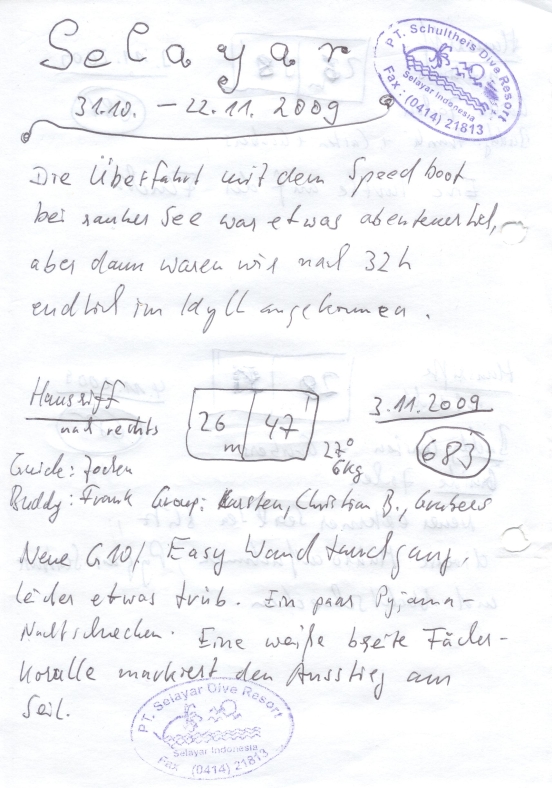 Selayar
PT. Schultheis Dive Resort
Selayar Indonesia
Fax : (0414) 21813
31.10. – 22.11. 2009
Die Überfahrt mit dem Speedboot
bei rauher See war etwas abenteuerlich,
aber dann waren wir nach 32h
endlich im Idyll angekommen.
Hausriff
nach rechts
26 m 47
27° 6kg
3.11.2009
683
Guide: Jochen
Buddy: Frank Group: Karsten, Christian B.,
Neue G10! Easy Wandtauchgang,
leider etwas trüb. Ein paar Pyjama-
Nacktschnecken. Eine weiße breite Fächer-
koralle markiert den Ausstieg am
Seil.
PT. Selayar Dive Resort
Selayar Indonesia
Fax (0414) 21813